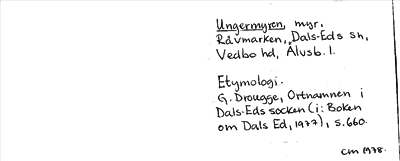 Ungermyren, myr,
Råvmarken, Dals-Eds sn,
Vedbo hd, Älvsb. l.
Etymologi.
G. Drougge, Ortnamnen i
Dals-Eds socken (i: Boken
om Dals Ed, 1977), s. 660.
CM 1978.